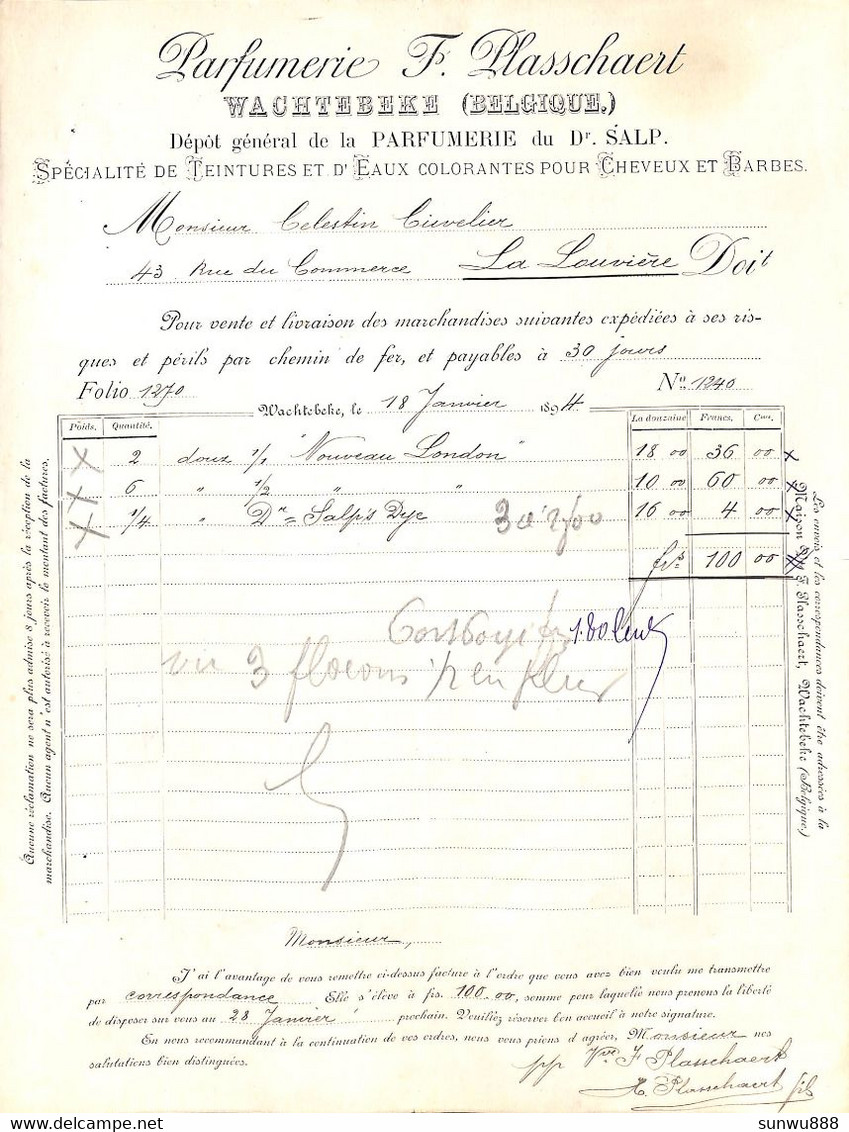 Parfumerie F. Plasschaert
WACHTEBEKE (BELGIQUE.)
Dépôt général de la PARFUMERIE du Dr. SALP.
SPÉCIALITÉ DE TEINTURES ET D'EAUX COLORANTES POUR CHEVEUX ET BARBES.
Monsieur Celestin Cuvelier
43 Rue du Commerce La Louvière Doit
Pour vente et livraison des marchandises suivantes expédiées à ses ris-
ques et périls par chemin de fer, et payables à 30 jours
Folio 1270 No 1240
Wachtebeke, le 18 Janvier 1894
Poids. Quantité. La douzaine Francs. Cen.
2 douz 1/1 "Nouveau London" 18 00 36 00
6 " 1/2 " " 10 00 60 00
1/4 " Dr Salp's Dye 16 00 4 00
frs 100 00
3 flacons
Monsieur,
J'ai l'avantage de vous remettre ci-dessus facture à l'ordre que vous avez bien voulu me transmettre
par correspondance Elle s'élève à frs. 100.00, somme pour laquelle nous prenons la liberté
de disposer sur vous au 28 Janvier prochain. Veuillez réserver bon accueil à notre signature.
En nous recommandant à la continuation de vos ordres, nous vous prions d'agréer, Monsieur nos
salutations bien distinguées.
pp Vve F. Plasschaert
A. Plasschaert fils
Aucune réclamation ne sera plus admise 8 jours après la réception de la
marchandise. Aucun agent n'est autorisé à recevoir le montant des factures.
Les envois et les correspondances doivent être adressées à la
Maison F. Plasschaert, Wachtebeke (Belgique.)
sunwu888